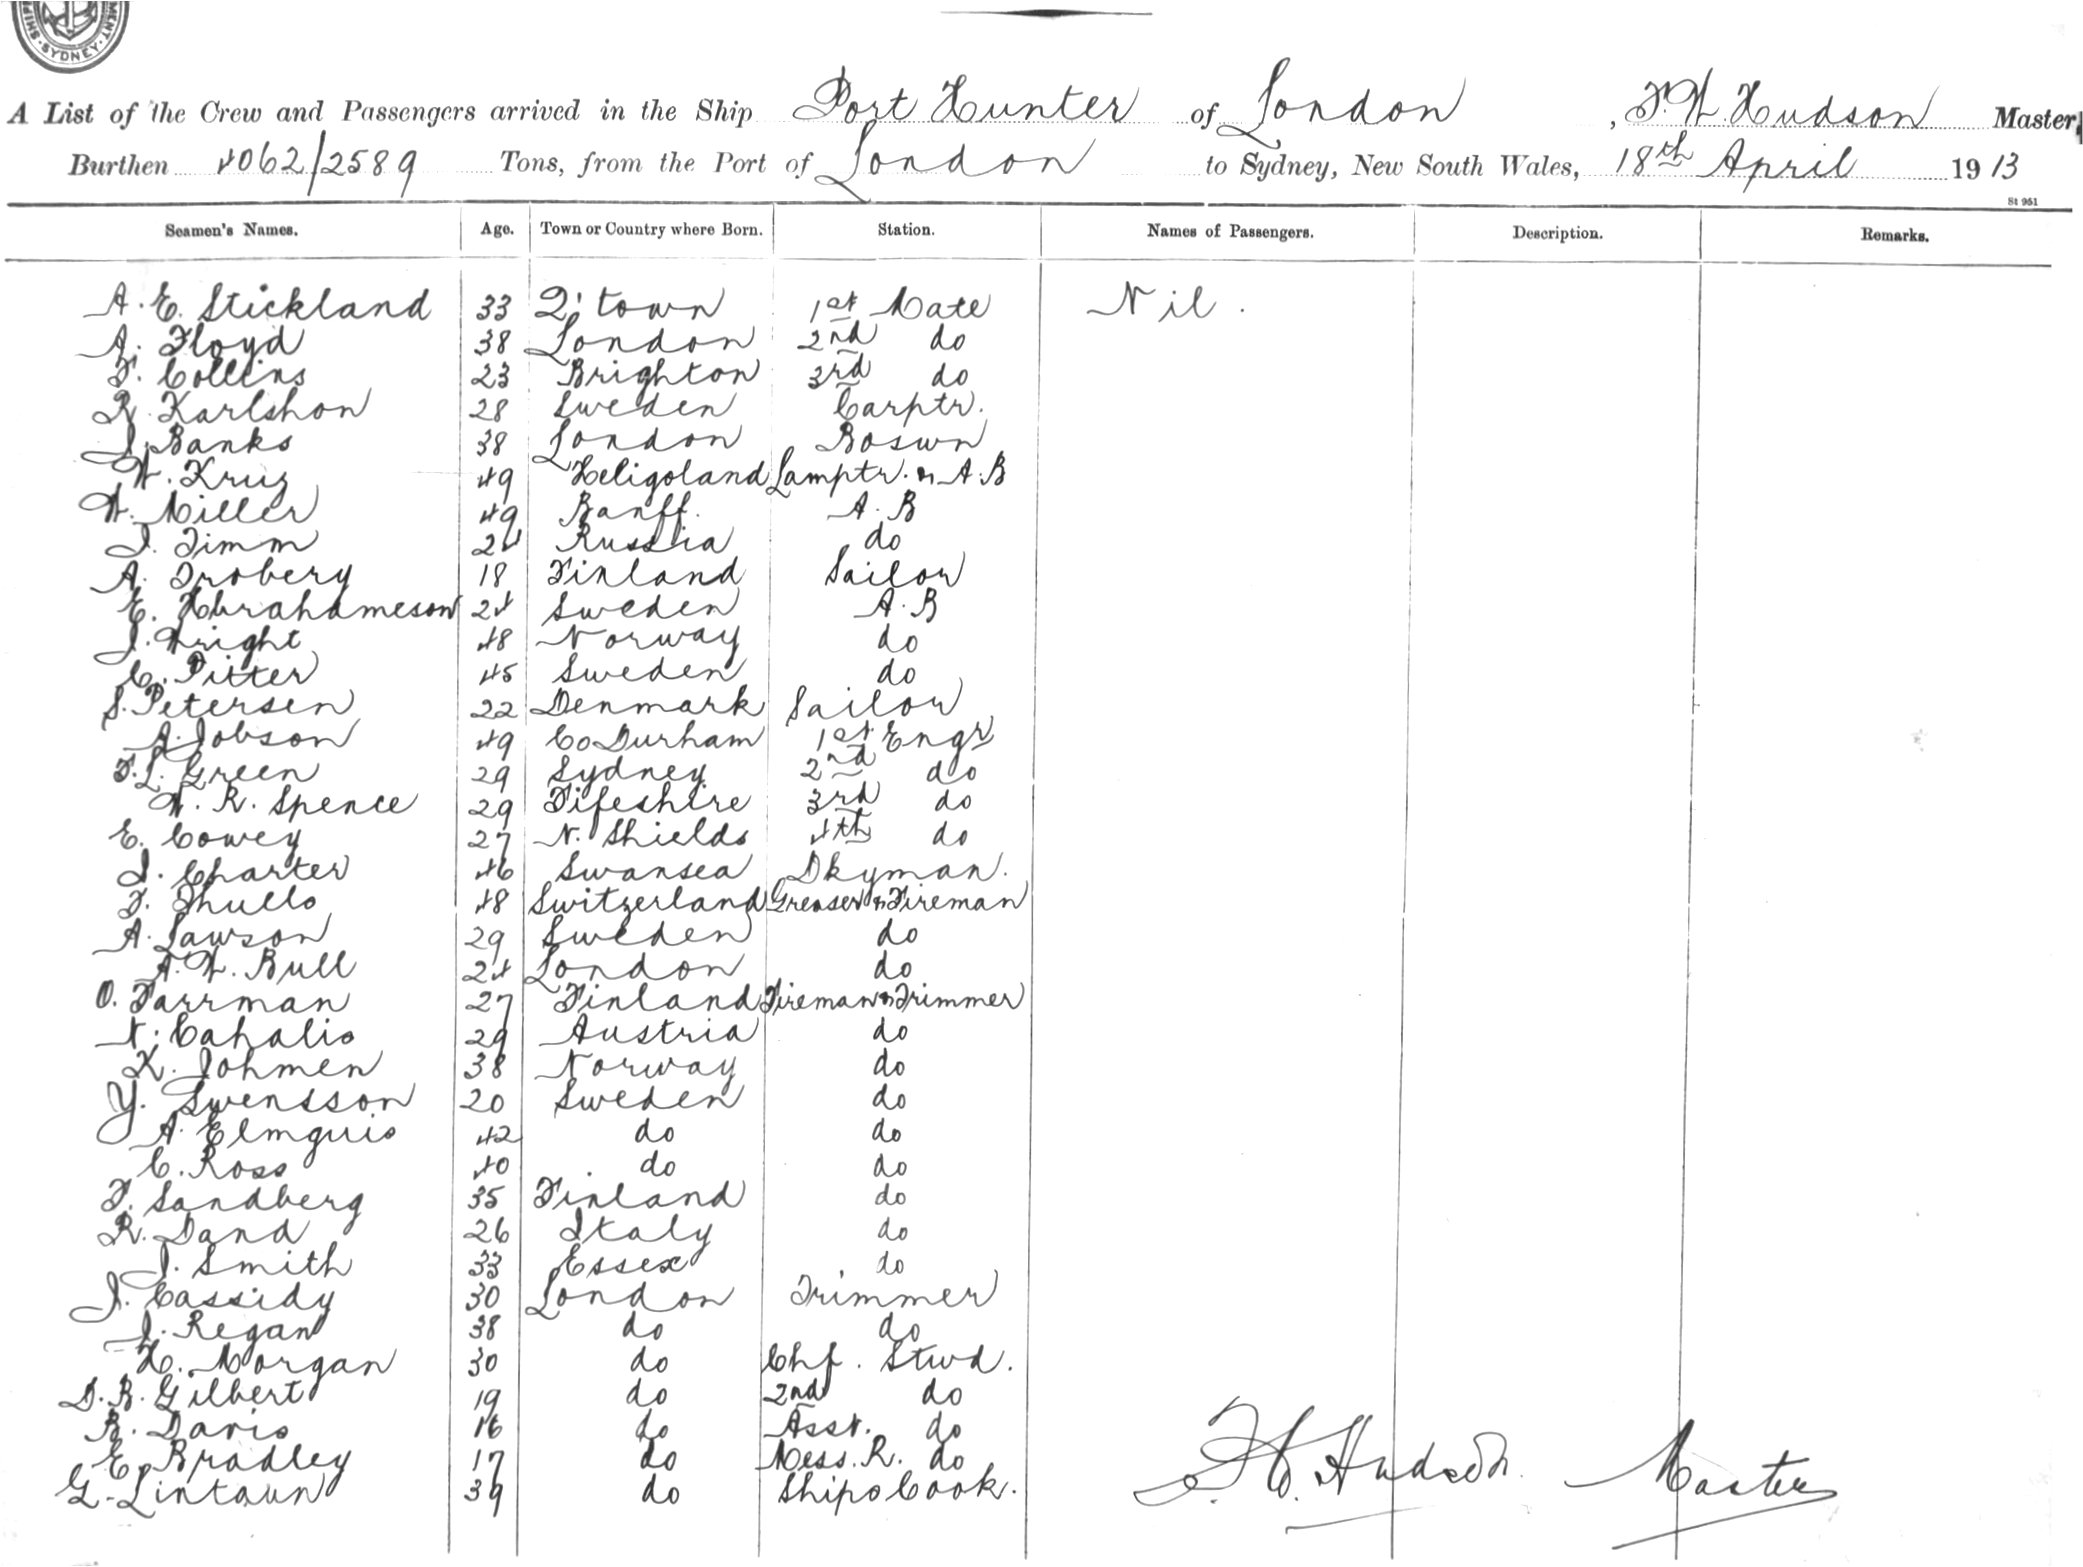 SYDNEY
A List of the Crew and Passengers arrived in the Ship Port Hunter of London, F. W. Hudson Master,
Burthen 4062/2589 Tons, from the Port of London to Sydney, New South Wales, 18th April 1913
St 951
Seamen's Names. Age. Town or Country where Born. Station. Names of Passengers. Description. Remarks.
A. E. Stickland 33 Q'town 1st Mate Nil.
A. Floyd 38 London 2nd do
F. Collins 23 Brighton 3rd do
R. Karlshon 28 Sweden Carptr.
J. Banks 38 London Boswn
W. Krug 49 Heligoland Lamptr. & A.B
W. Miller 49 Banff. A.B
J. Timm 24 Russia do
A. Troberg 18 Finland Sailor
E. Abrahameson 24 Sweden A.B
J. Wright 48 Norway do
C. Pitter 45 Sweden do
S. Petersen 22 Denmark Sailor
A. Jobson 49 Co Durham 1st Engr
F. L. Green 29 Sydney 2nd do
W. R. Spence 29 Fifeshire 3rd do
E. Cowey 27 N. Shields 4th do
J. Charter 46 Swansea Dkyman.
F. Thullo 48 Switzerland Greaser & Fireman
A. Lawson 29 Sweden do
A. W. Bull 24 London do
O. Farrman 27 Finland Fireman & Trimmer
N. Cahalio 29 Austria do
K. Johmen 38 Norway do
Y. Swensson 20 Sweden do
A. Elmquis 42 do do
C. Ross 40 do do
F. Sandberg 35 Finland do
R. Dand 26 Italy do
J. Smith 33 Essex do
J. Cassidy 30 London Trimmer
J. Regan 38 do do
H. Morgan 30 do Chf. Stwd.
D. B. Gilbert 19 do 2nd do
B. Davis 16 do Asst. do
E. Bradley 17 do Mess. R. do
G. Lintaun 39 do Ships Cook.
F. W. Hudson Master